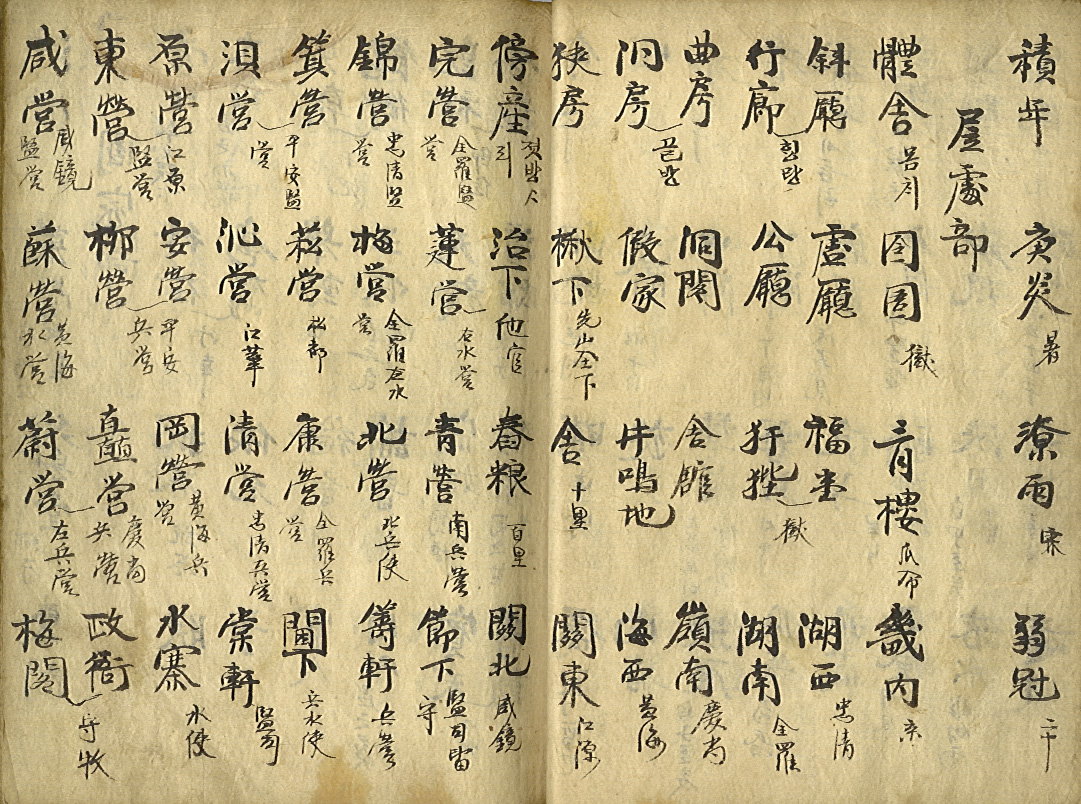 積年 庚炎 暑 潦雨 霖 弱冠 二十
屋處部
體舍 몸치 囹圄 獄 青樓 瓜市 畿内 京
斜廳 虛廳 福堂 湖西 忠清
行廊 힝낭 公廳 犴狴 獄 湖南 全羅
曲房 洞閣 舍館 嶺南 慶尚
洞房 골방 假家 牛鳴地 海西 黃海
挾房 楸下 先山全下 舍 十里 關東 江源
停産 졋방사리 治下 他官 舂粮 百里 關北 咸鏡
完營 全羅監營 蓮營 右水營 青營 南兵營 節下 監司留守
錦營 忠清監營 梅營 全羅左水營 北營 北兵使 籌軒 兵營
箕營 平安監營 菘營 松都 康營 全羅兵營 閫下 兵水使
浿營 沁營 江華 清營 忠清兵營 棠軒 監司
原營 江原監營 安營 平安兵營 岡營 黃海兵營 水寨 水使
東營 柳營 直營 慶尚兵營 政衙 守牧
咸營 咸鏡監營 蘇營 黃海水營 蔚營 左兵營 梅閣